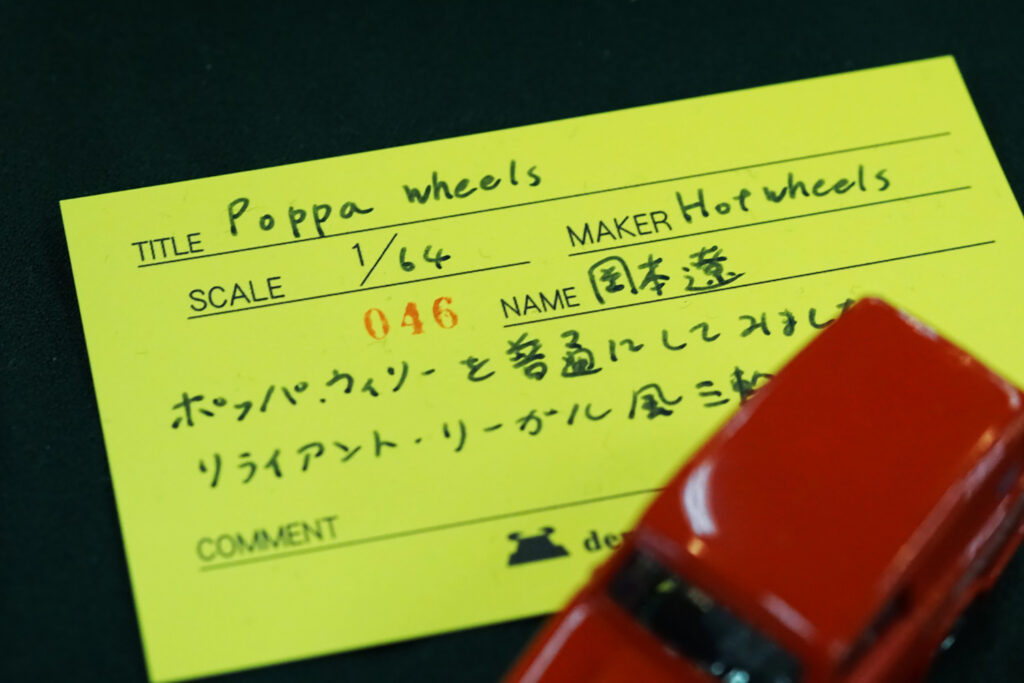 TITLE Poppa wheels
SCALE 1/64 MAKER Hot wheels
046 NAME 岡本遼
ポッパ・ウィリーを普通にしてみました
リライアント・リーガル風三輪
COMMENT